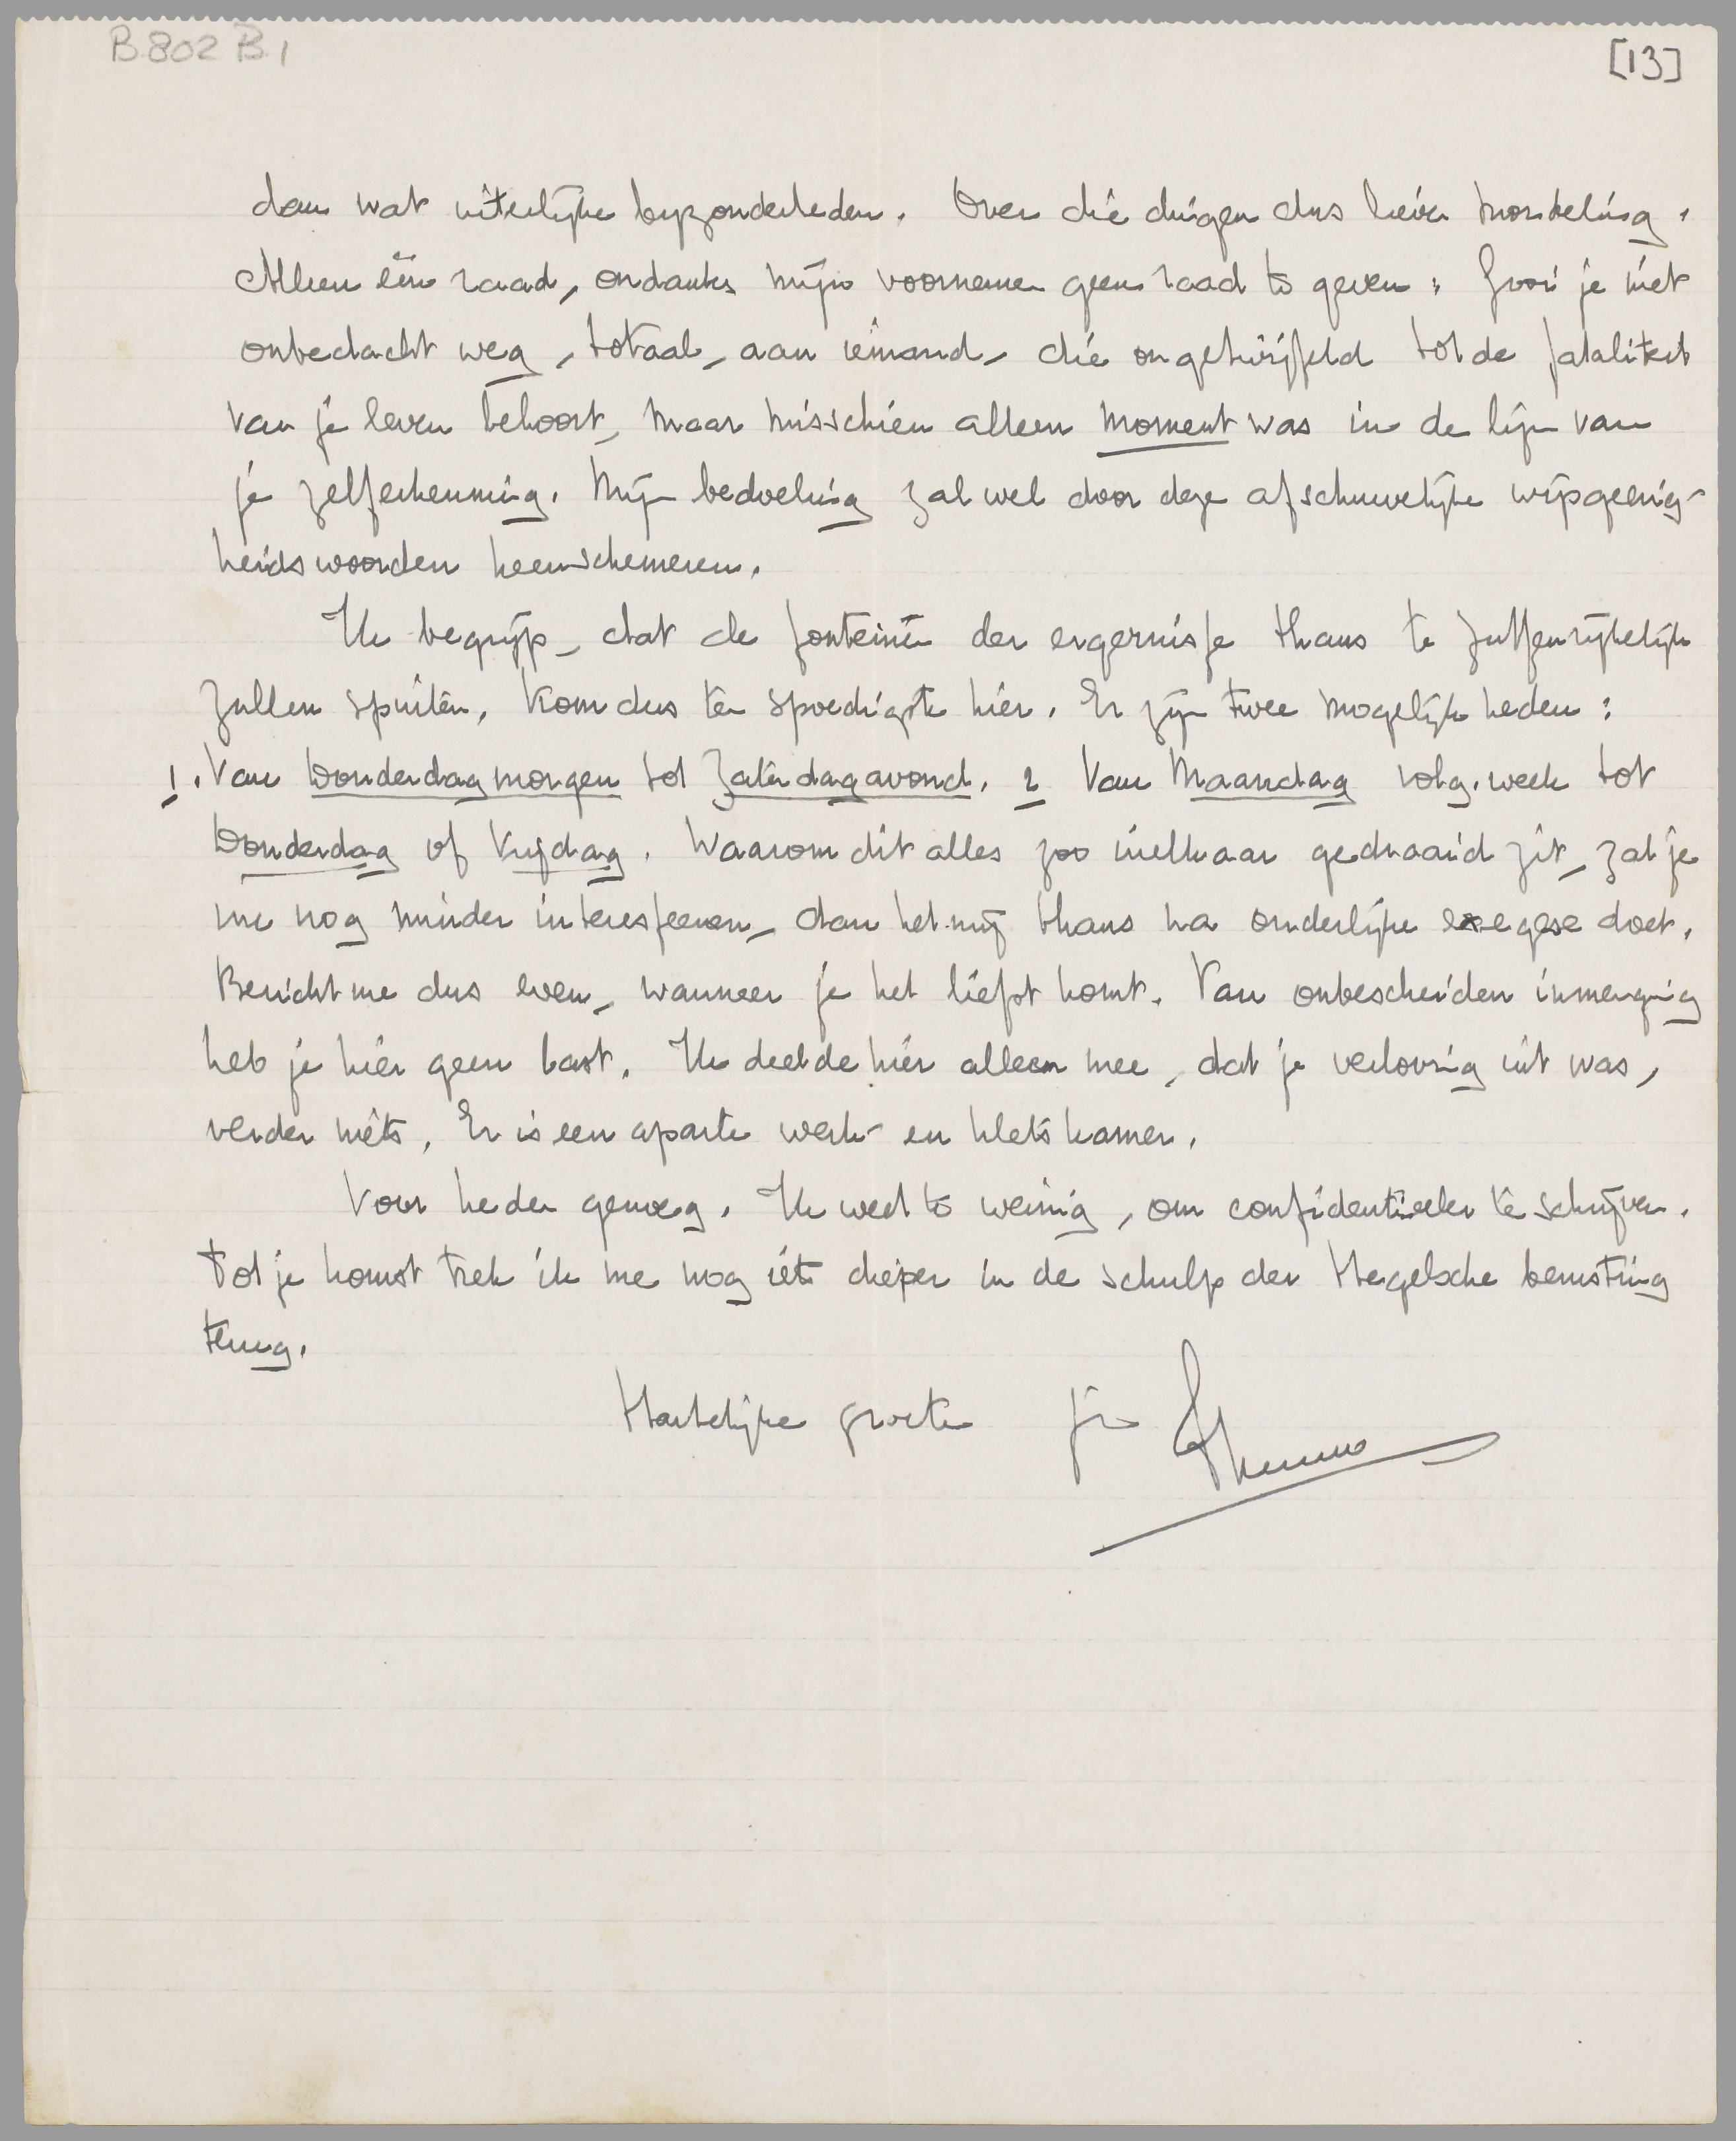 B 802 B 1
[13]
dan wat uiterlijke byzonderheden. Over die dingen dus liever mondeling.
Alleen één raad, ondanks mijn voornemen geen raad te geven: gooi je niet
onbedacht weg, totaal, aan iemand, die ongetwijfeld tot de fataliteit
van je leven behoort, maar misschien alleen moment was in de lijn van
je zelferkenning. Mijn bedoeling zal wel door deze afschuwelijke wijsgeerig-
heidswoorden heenschemeren.
Ik begrijp, dat de fonteinen der ergernisse thans te Zutfen rijkelijk
zullen spuiten. Kom dus ten spoedigste hier. Er zijn twee mogelijkheden:
1. Van Donderdagmorgen tot Zaterdagavond. 2 Van Maandag volg. week tot
Donderdag of Vrijdag. Waarom dit alles zoo inelkaar gedraaid zit, zal je
nu nog minder interesseeren, dan het mij thans na ouderlijke exegese doet.
Bericht me dus even, wanneer je het liefst komt. Van onbescheiden inmenging
heb je hier geen last. Ik deelde hier alleen mee, dat je verloving uit was,
verder niets. Er is een aparte werk- en kletskamer.
Voor heden genoeg. Ik weet te weinig, om confidentieeler te schrijven.
Tot je komst trek ik me nog iets dieper in de schulp der Hegelsche berusting
terug.
Hartelijke groeten je Menno